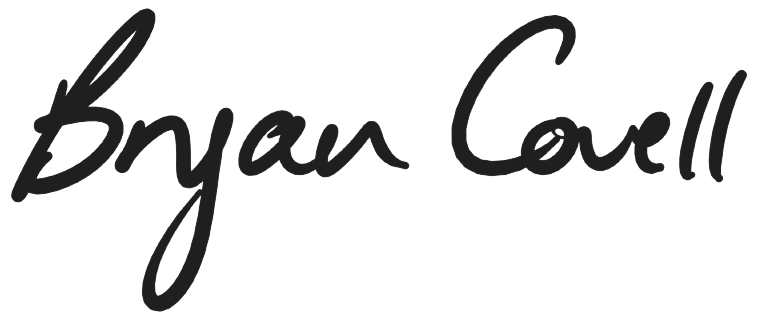 Bryan Covell